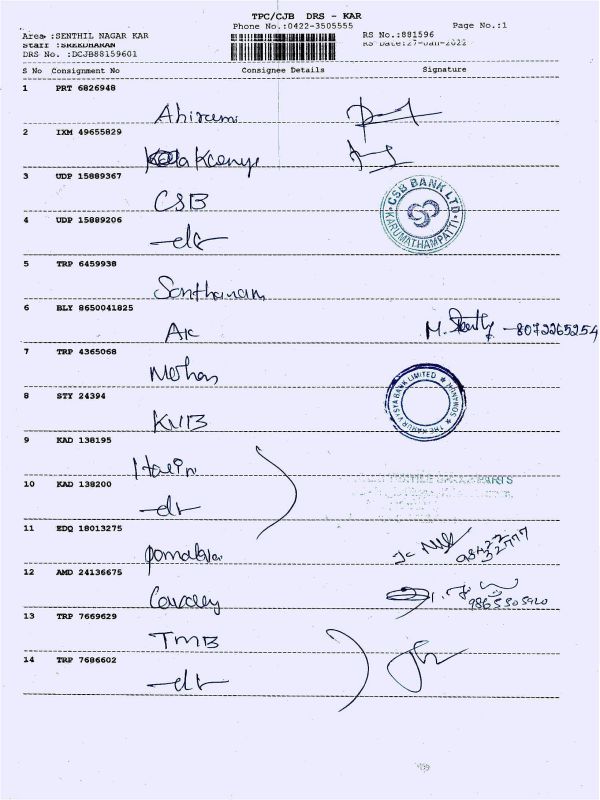 TPC/CJB DRS - KAR
Phone No.:0422-3505555
Page No.:1
Area :SENTHIL NAGAR KAR
RS No.:881596
Staff :SREEDHARAN
RS Date:27-Jan-2022
DRS No. :DCJB88159601
S No Consignment No Consignee Details Signature
1 PRT 6826948
Ahirami
2 IXM 49655829
3 UDP 15889367
CSB
CSB BANK LTD
KARUMATHAMPATTI
4 UDP 15889206
5 TRP 6459938
Santhanam
6 BLY 8650041825
AK
M. 8072265254
7 TRP 4365068
Mohan
8 STY 24394
KVB
THE KARUR VYSYA BANK LIMITED
SOMANUR
9 KAD 138195
10 KAD 138200
11 EDQ 18013275
12 AMD 24136675
9865505920
13 TRP 7669629
TMB
14 TRP 7686602